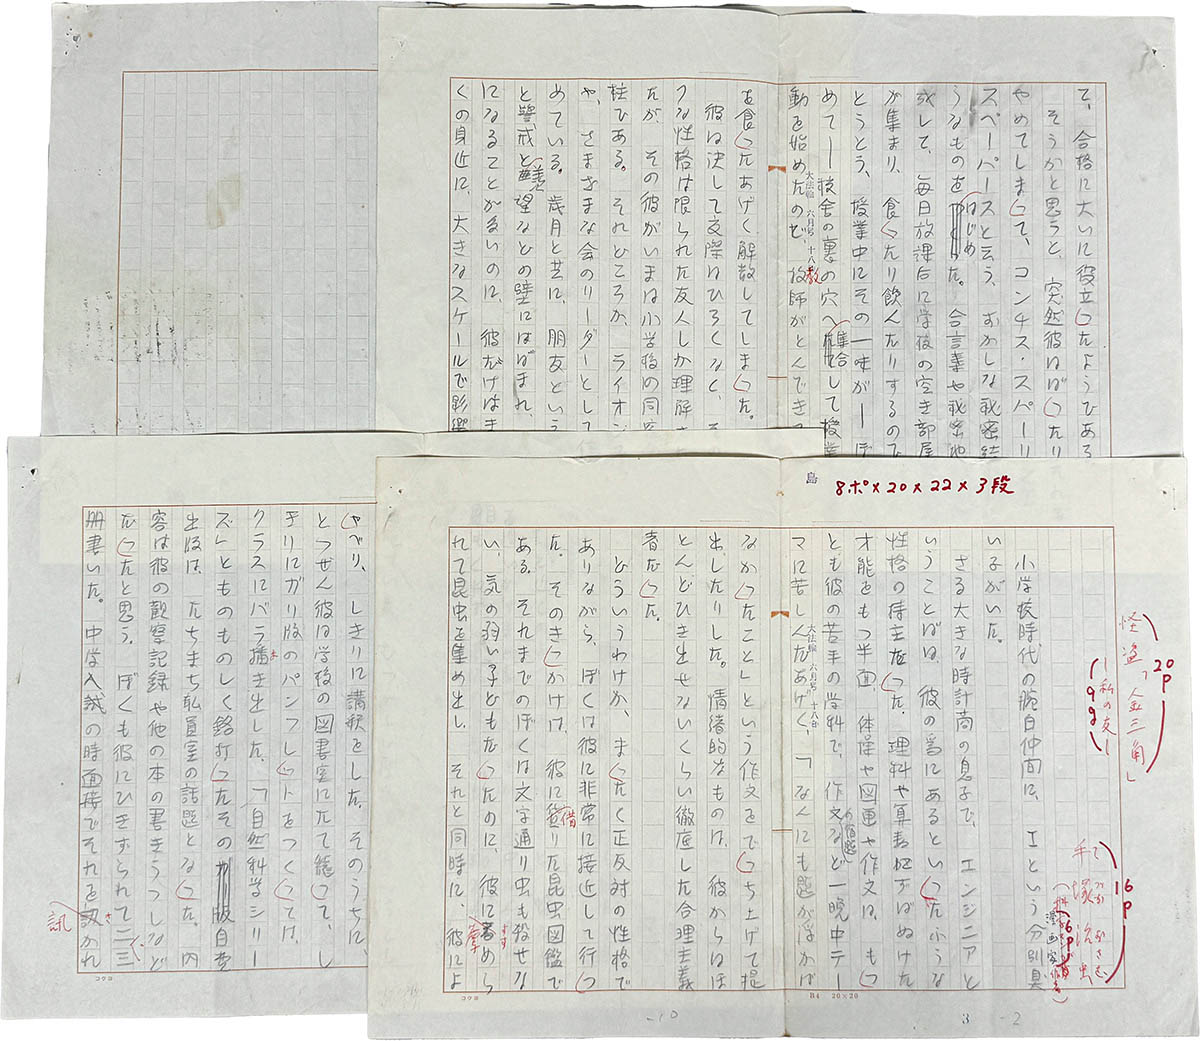 8ポ×20×22×3段
島
20P
怪盗「金三角」
―私の友―
(9g)
16P
てづか おさむ
手塚治虫
漫画家
小学校時代の腕白仲間に、Iという分別臭
い子がいた。
さる大きな時計商の息子で、エンジニアと
いうことばは、彼の為にあるといったふうな
性格の持主だった。理科や算数にずばぬけた
才能をもつ半面、体操や図画や作文は、もっ
とも彼の苦手の学科で、作文の宿題など一晩中テー
マに苦しんだあげく、「なんにも題がうかば
大法輪 六月号 十八
なかったこと」という作文をでっち上げて提
出したりした。情緒的なものは、彼からはほ
とんどひき出せないくらい徹底した合理主義
者だった。
どういうわけか、まったく正反対の性格で
ありながら、ぼくは彼に非常に接近して行っ
た。そのきっかけは、彼に借りた昆虫図鑑で
ある。それまでのぼくは文字通り虫も殺せな
い、気の弱い子どもだったのに、彼に奨めら
れて昆虫を集め出し、それと同時に、彼によ
B4 20×20
コクヨ
3 -2
-10
ゃべり、しきりに講釈をした。そのうちに、
とつぜん彼は学校の図書室にたて籠って、し
きりにガリ版のパンフレットをつくっては、
クラスにバラ播き出した。「自然科学シリー
ズ」とものものしく銘打ったその版自費
出版は、たちまち職員室の話題となった。内
容は彼の観察記録や他の本の書きうつしなど
だったと思う。ぼくも彼にひきずられて二、三
冊書いた。中学入試の時面接でそれを訊かれ
訊
コクヨ
て、合格に大いに役立ったようである
そうかと思うと、突然彼はぱったり
やめてしまって、コンチス・スパーリ
スペーパースと云う、おかしな秘密結
うなものをはじめた。合言葉や秘密地
成して、毎日放課后に学校の空き部屋
が集まり、食ったり飲んだりするので
とうとう、授業中にその一味が―ぼ
めて―校舎の裏の穴へ集合して授業
動を始めたので、教師がとんでき
大法輪 六月号 十八
を食ったあげく解散してしまった。
彼は決して交際はひろくなく、そ
うな性格は限られた友人しか理解
たが、その彼がいまは小学校の同窓
柱である。それどころか、ライオン
や、さまざまな会のリーダーとして
めている。歳月と共に、朋友という
と警戒と羨望などの壁にはばまれ、
になることが多いのに、彼だけはま
くの身近に、大きなスケールで影響